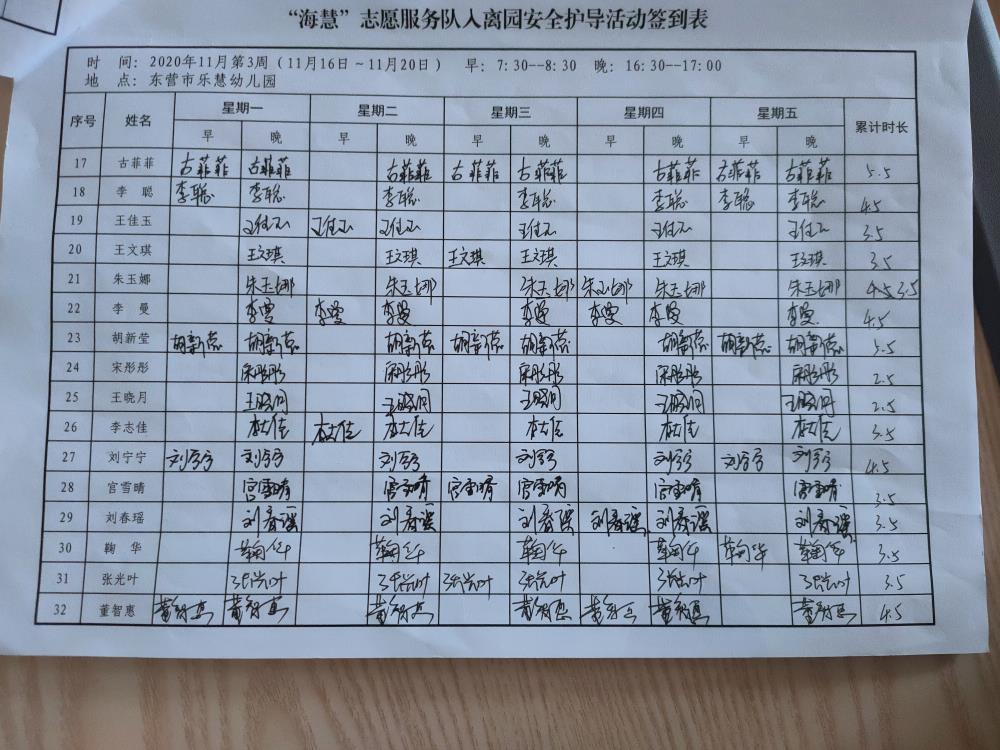 “海慧”志愿服务队入离园安全护导活动签到表
时 间：2020年11月第3周（11月16日～11月20日） 早：7:30--8:30 晚：16:30--17:00
地 点：东营市乐慧幼儿园
序号 姓名 星期一 星期二 星期三 星期四 星期五 累计时长
早 晚 早 晚 早 晚 早 晚 早 晚
17 古菲菲 古菲菲 古菲菲 古菲菲 古菲菲 古菲菲 古菲菲 古菲菲 古菲菲 5.5
18 李 聪 李聪 李聪 李聪 李聪 李聪 李聪 李聪 4.5
19 王佳玉 王佳玉 王佳玉 王佳玉 王佳玉 王佳玉 王佳玉 3.5
20 王文琪 王文琪 王文琪 王文琪 王文琪 王文琪 王文琪 3.5
21 朱玉娜 朱玉娜 朱玉娜 朱玉娜 朱玉娜 朱玉娜 朱玉娜 4.5 3.5
22 李 曼 李曼 李曼 李曼 李曼 李曼 李曼 李曼 4.5
23 胡新莹 胡新莹 胡新莹 胡新莹 胡新莹 胡新莹 胡新莹 胡新莹 胡新莹
24 宋彤彤 宋彤彤 宋彤彤 宋彤彤 宋彤彤 宋彤彤 2.5
25 王晓月 王晓月 王晓月 王晓月 王晓月 王晓月 2.5
26 李志佳 李志佳 李志佳 李志佳 李志佳 李志佳 李志佳 3.5
27 刘宁宁 刘宁宁 刘宁宁 刘宁宁 刘宁宁 刘宁宁 刘宁宁 刘宁宁 4.5
28 官雪晴 官雪晴 官雪晴 官雪晴 官雪晴 官雪晴 官雪晴 3.5
29 刘春瑶 刘春瑶 刘春瑶 刘春瑶 刘春瑶 刘春瑶 刘春瑶 3.5
30 鞠 华 鞠华 鞠华 鞠华 鞠华 鞠华 鞠华 3.5
31 张光叶 张光叶 张光叶 张光叶 张光叶 张光叶 张光叶 3.5
32 董智惠 董智惠 董智惠 董智惠 董智惠 董智惠 董智惠 董智惠 4.5